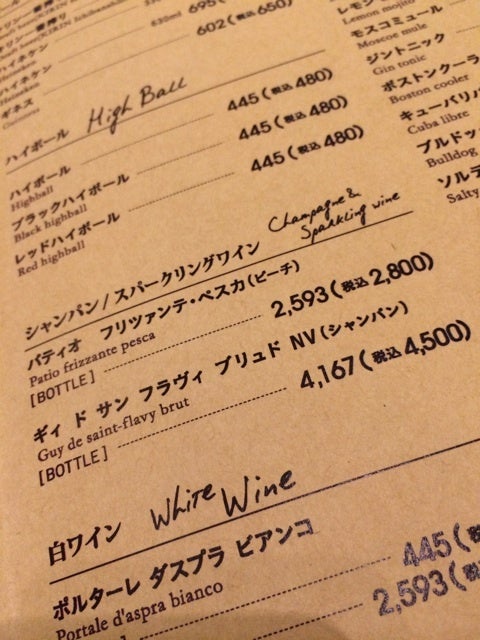 695(
650)
630ml
602(税込650)
ハイネケン
Heineken
ギネス
Guinness
ハイボール High Ball
ハイボール 445(税込480)
Highball
ブラックハイボール 445(税込480)
Black highball
レッドハイボール 445(税込480)
Red highball
シャンパン/スパークリングワイン Champagne & Sparkling wine
パティオ フリツァンテ・ペスカ(ピーチ)
Patio frizzante pesca
[BOTTLE] 2,593(税込2,800)
ギィ ド サン フラヴィ ブリュド NV(シャンパン)
Guy de saint-flavy brut
[BOTTLE] 4,167(税込4,500)
白ワイン White Wine
ポルターレ ダスプラ ビアンコ
Portale d'aspra bianco
445(税
2,593(税
Lemon mojito
モスコミュール
Moscow mule
ジントニック
Gin tonic
ボストンクーラ
Boston cooler
キューバリバ
Cuba libre
ブルドッ
Bulldog
ソルテ
Salty